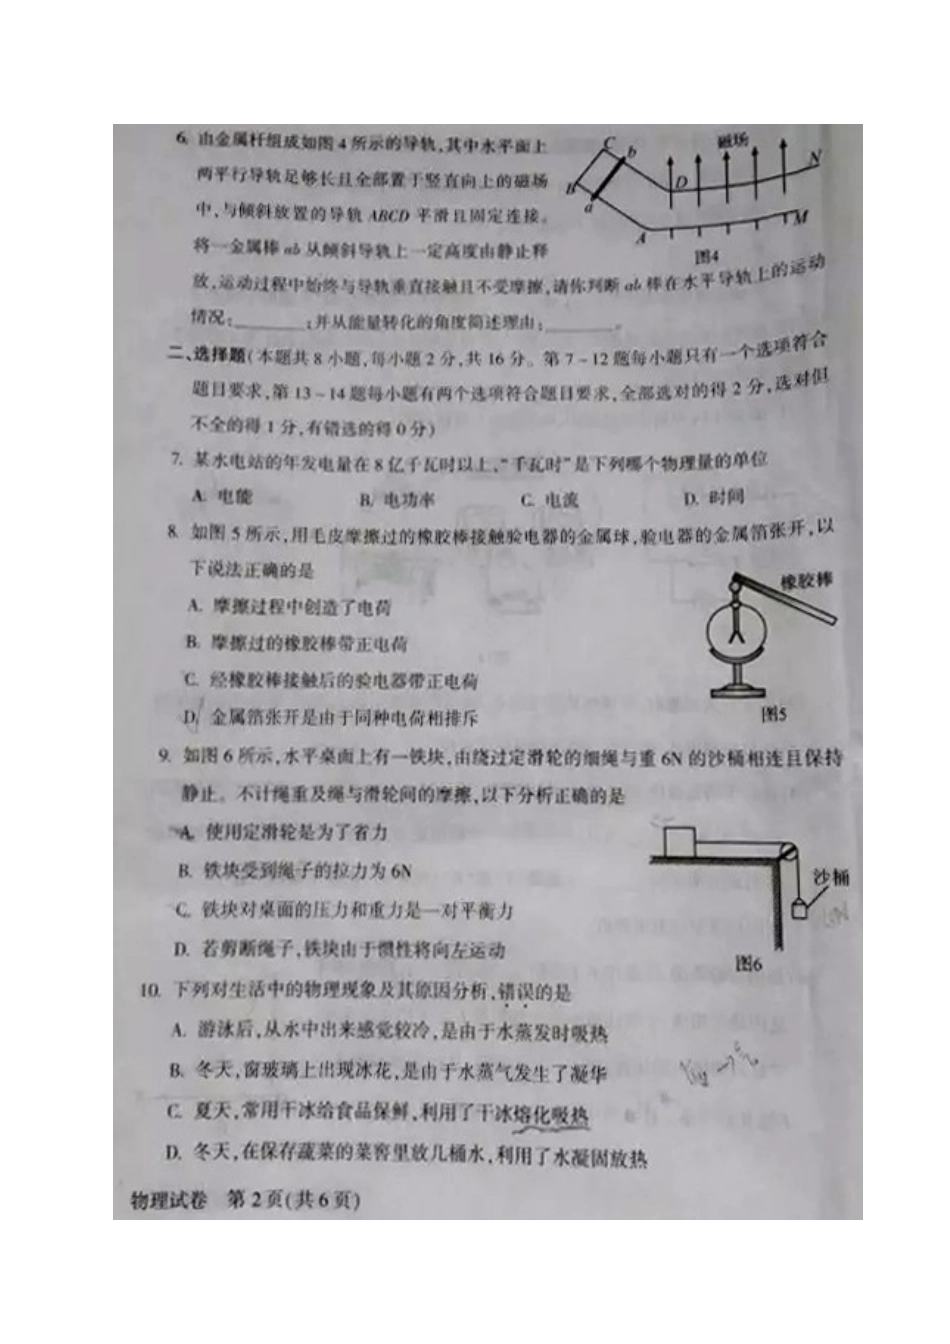 6. 由金属杆组成如图4所示的导轨,其中水平面上
两平行导轨足够长且全部置于竖直向上的磁场
中,与倾斜放置的导轨ABCD平滑且固定连接。
将一金属棒ab从倾斜导轨上一定高度由静止释
放,运动过程中始终与导轨垂直接触且不受摩擦,请你判断ab棒在水平导轨上的运动
情况:________;并从能量转化的角度简述理由:________。
磁场
C
b
N
D
B
a
A
M
图4
二、选择题(本题共8小题,每小题2分,共16分。第7~12题每小题只有一个选项符合
题目要求,第13~14题每小题有两个选项符合题目要求,全部选对的得2分,选对但
不全的得1分,有错选的得0分)
7. 某水电站的年发电量在8亿千瓦时以上,“千瓦时”是下列哪个物理量的单位
A. 电能 B. 电功率 C. 电流 D. 时间
8. 如图5所示,用毛皮摩擦过的橡胶棒接触验电器的金属球,验电器的金属箔张开,以
下说法正确的是
A. 摩擦过程中创造了电荷
B. 摩擦过的橡胶棒带正电荷
C. 经橡胶棒接触后的验电器带正电荷
D. 金属箔张开是由于同种电荷相排斥
橡胶棒
图5
9. 如图6所示,水平桌面上有一铁块,由绕过定滑轮的细绳与重6N的沙桶相连且保持
静止。不计绳重及绳与滑轮间的摩擦,以下分析正确的是
A. 使用定滑轮是为了省力
B. 铁块受到绳子的拉力为6N
C. 铁块对桌面的压力和重力是一对平衡力
D. 若剪断绳子,铁块由于惯性将向左运动
沙桶
图6
10. 下列对生活中的物理现象及其原因分析,错误的是
A. 游泳后,从水中出来感觉较冷,是由于水蒸发时吸热
B. 冬天,窗玻璃上出现冰花,是由于水蒸气发生了凝华
C. 夏天,常用干冰给食品保鲜,利用了干冰熔化吸热
D. 冬天,在保存蔬菜的菜窖里放几桶水,利用了水凝固放热
物理试卷 第2页(共6页)